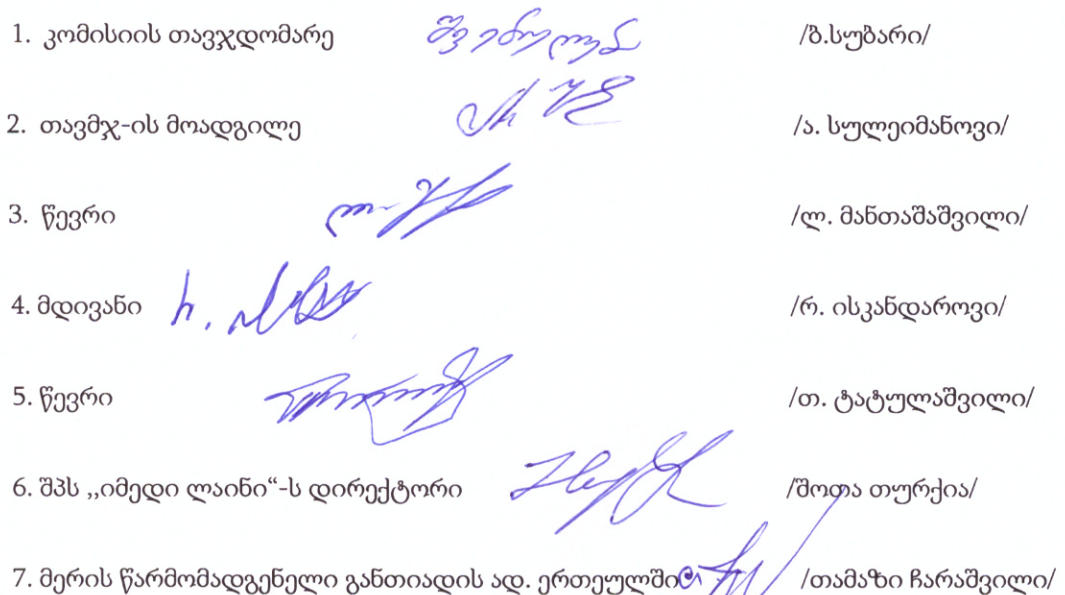 1. კომისიის თავჯდომარე /ზ.სუბარი/
2. თავმჯ-ის მოადგილე /ა. სულეიმანოვი/
3. წევრი /ლ. მანთაშაშვილი/
4. მდივანი /რ. ისკანდაროვი/
5. წევრი /თ. ტატულაშვილი/
6. შპს ,,იმედი ლაინი“-ს დირექტორი /შოთა თურქია/
7. მერის წარმომადგენელი განთიადის ად. ერთეულში /თამაზი ჩარაშვილი/